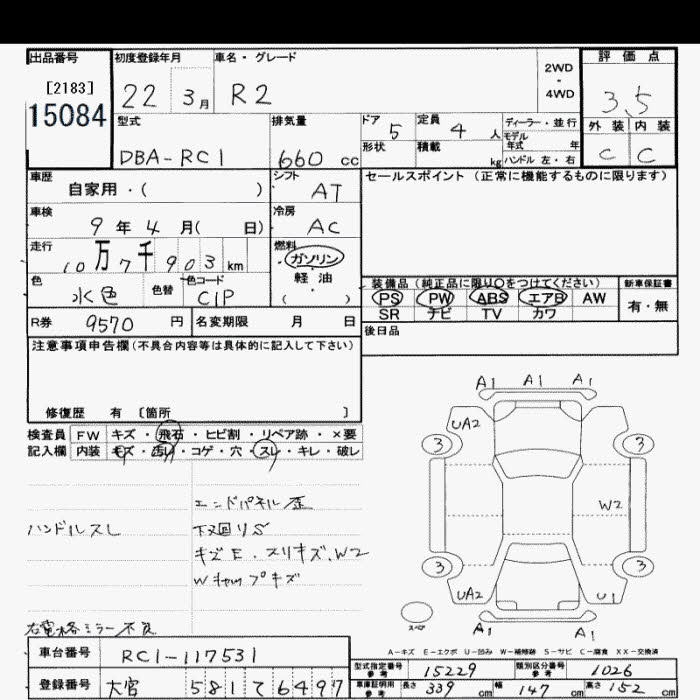 出品番号
[2183]
15084
初度登録年月
22 3月
車名・グレード
R2
2WD
・
4WD
評価点
3.5
外装 内装
C C
型式
DBA-RC1
排気量
660 cc
ドア
5
定員
4 人
ディーラー・並行
モデル
年式 年
形状
積載
kg
ハンドル 左・右
車歴
自家用・( )
シフト
AT
セールスポイント (正常に機能するものに限ります)
車検
9年 4月( 日)
冷房
AC
走行
10万7千903km
燃料
ガソリン
軽油
( )
色
水色
色替
色コード
C1P
装備品 (純正品に限り○をつけてください)
PS PW ABS エアB AW
SR ナビ TV カワ
新車保証書
有・無
R券 9570 円
名変期限 月 日
後日品
注意事項申告欄(不具合内容等は具体的に記入して下さい)
修復歴 有 〔箇所 〕
検査員
記入欄
FW キズ・飛石・ヒビ割・リペア跡・×要
内装 キズ・汚レ・コゲ・穴・スレ・キレ・破レ
エンドパネル歪
ハンドルスレ
下廻リS
キズE、スリキズ、W2
Wキャップキズ
右電格ミラー不良
A1 A1 A1
UA2
3 3
W2
3 3
UA2 U1
A1 A1
スペア
A-キズ E-エクボ U-凹み W-補修跡 S-サビ C-腐食 XX-交換済
車台番号 RC1-117531
登録番号 大宮 581 て 6497
型式指定番号
参考
15229
類別区分番号
参考
1026
車庫証明用
参考
長さ 339 cm 幅 147 cm 高さ 152 cm